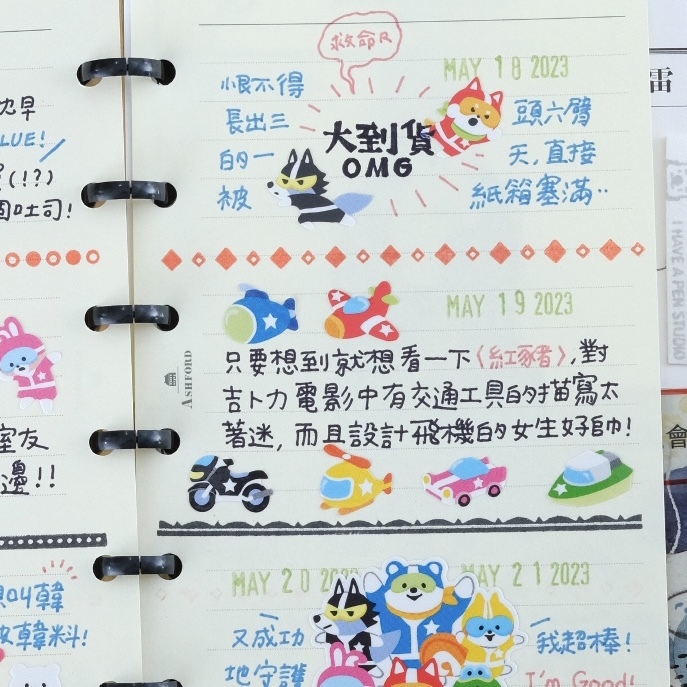 救命ㄚ
MAY 18 2023
恨不得
長出三
的一
被
大到貨
OMG
頭六臂
天,直接
紙箱塞滿..
MAY 19 2023
只要想到就想看一下〈紅豚者〉,對
吉卜力電影中有交通工具的描寫太
著迷,而且設計飛機的女生好帥!
ASHFORD
MAY 20
MAY 21 2023
又成功
地守護
我超棒!
I'm Good!
早
LUE!
(!?)
吐司!
室友
邊!!
叫韓
韓料!
雷
I HAVE A PEN STUDIO
會